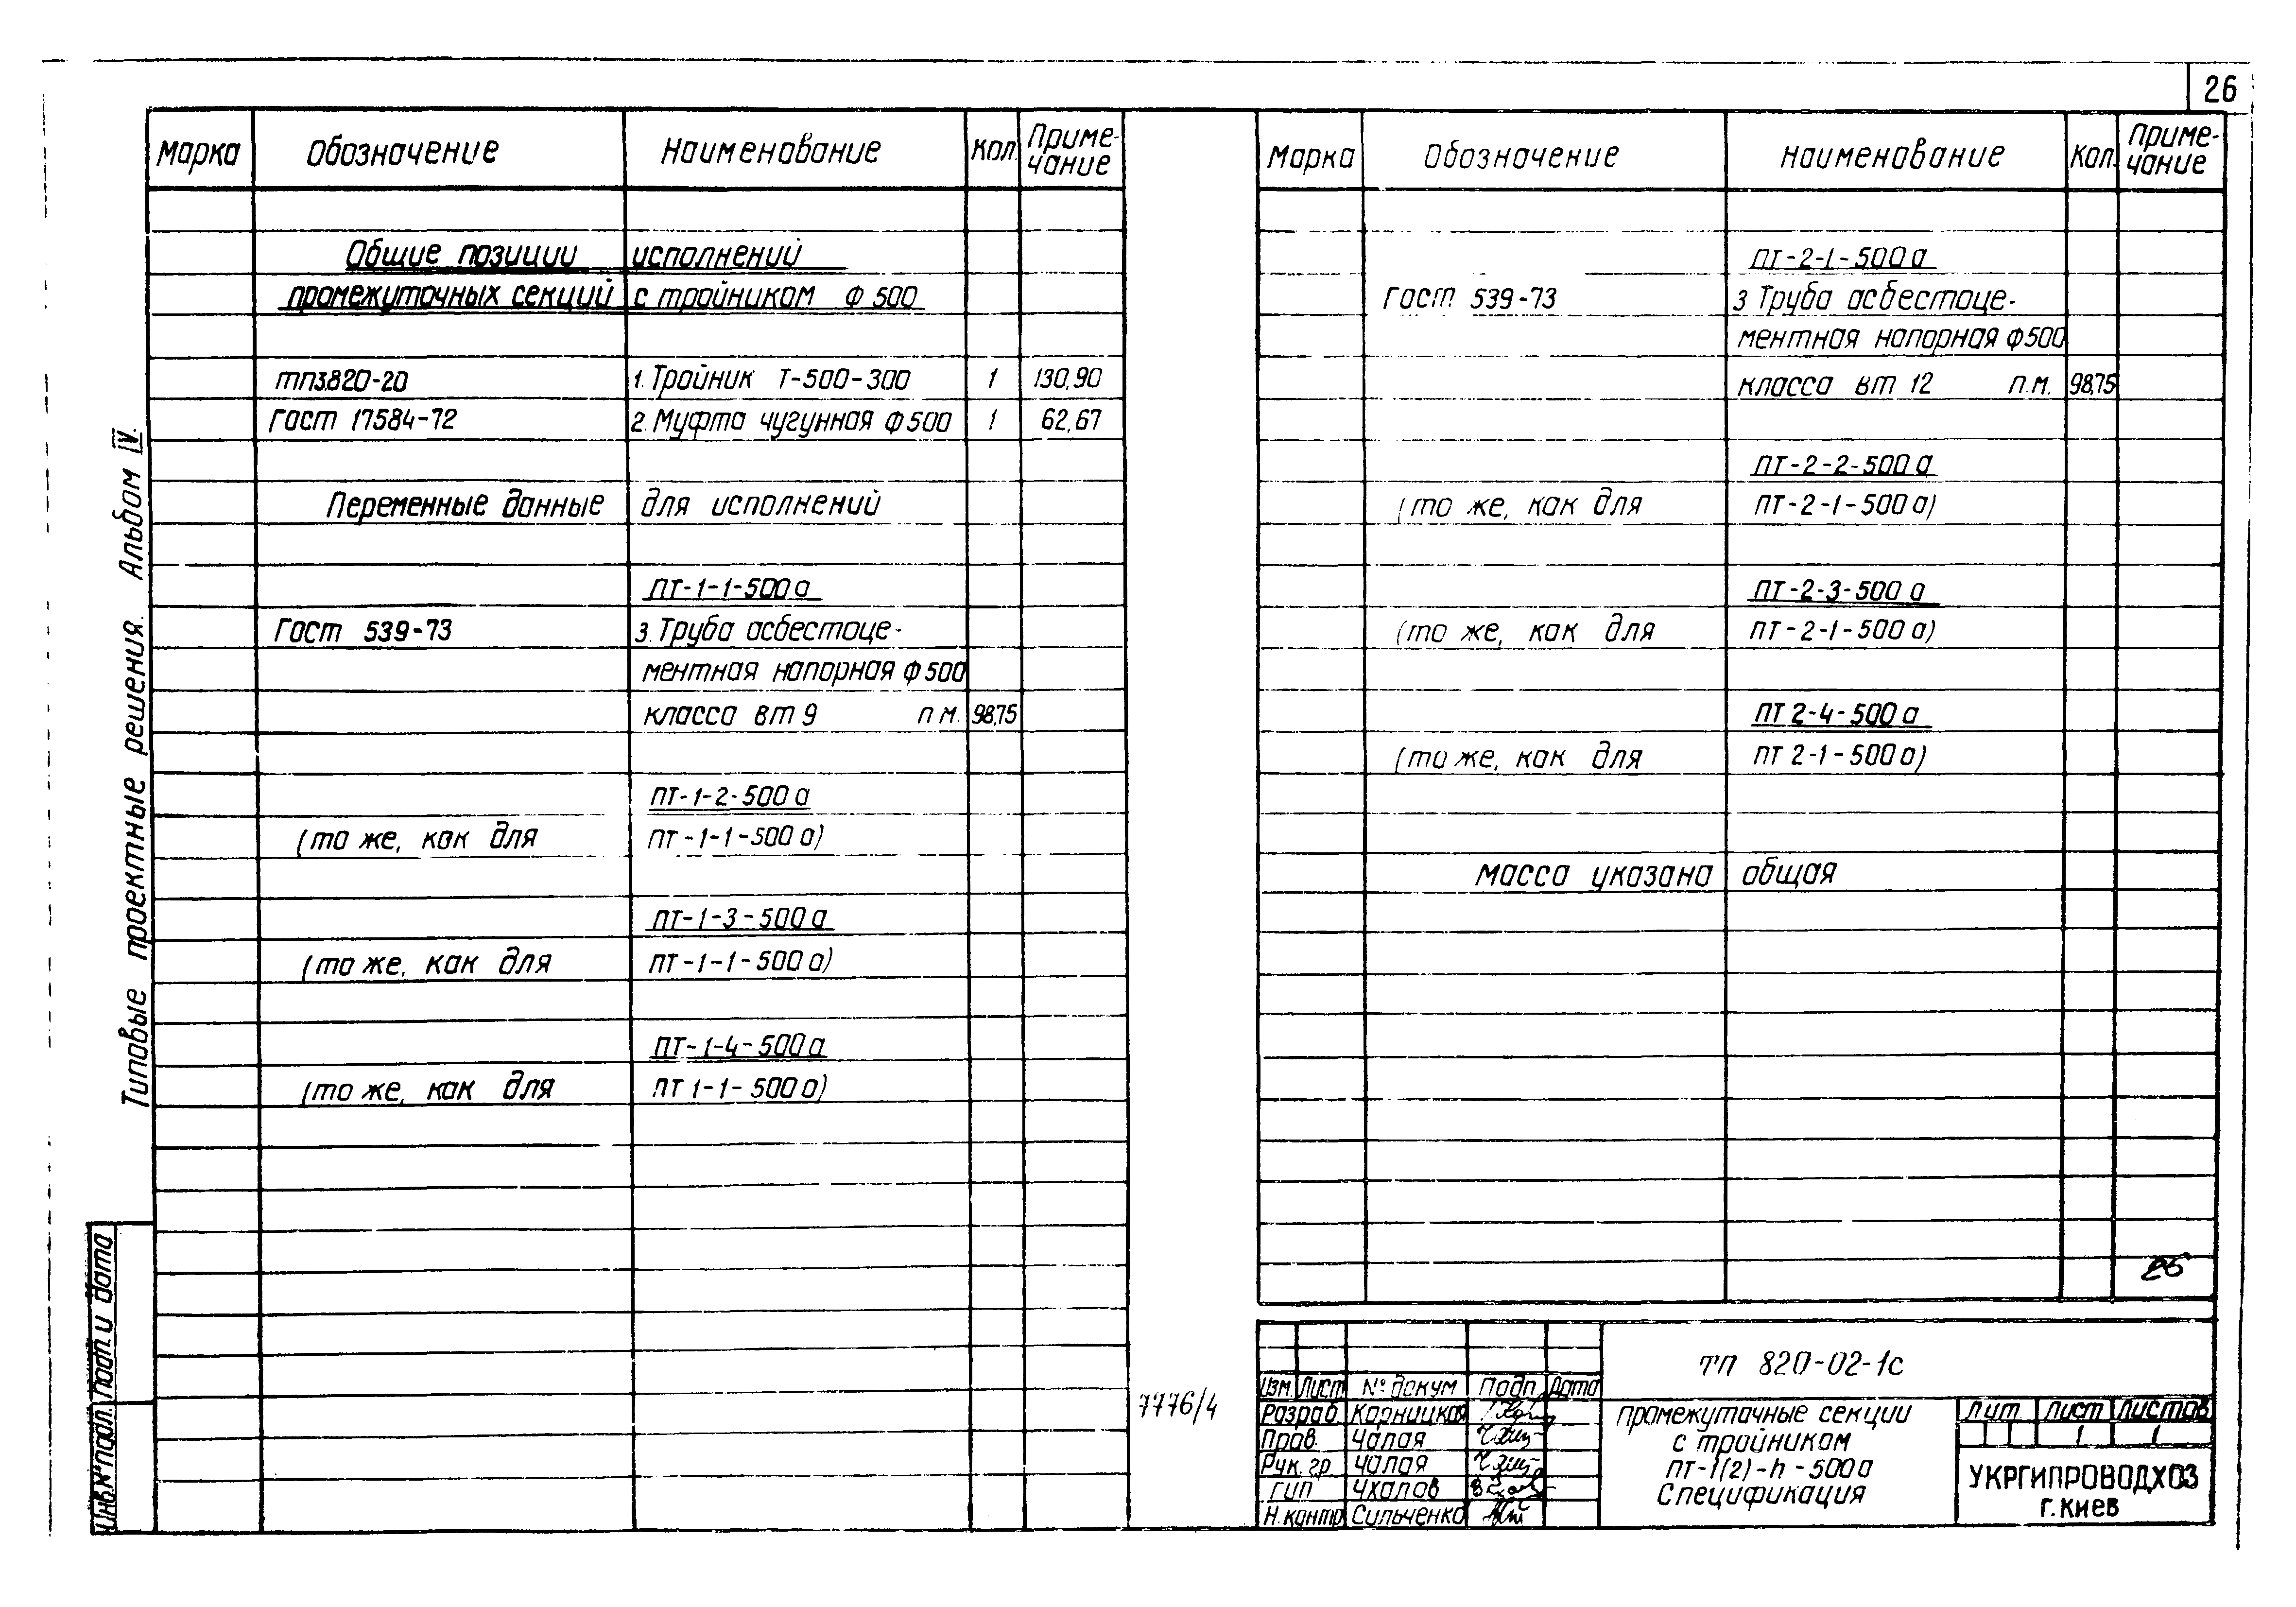 26
Марка Обозначение Наименование Кол. Приме-
чание
Общие позиции исполнений
промежуточных секций с тройником Ф 500
ТП3.820-20 1. Тройник Т-500-300 1 130,90
Гост 17584-72 2. Муфта чугунная Ф500 1 62,67
Переменные данные для исполнений
ПТ-1-1-500а
Гост 539-73 3. Труба асбестоце-
ментная напорная Ф500
класса ВТ 9 п.м. 98,75
ПТ-1-2-500а
(то же, как для ПТ-1-1-500а)
ПТ-1-3-500а
(то же, как для ПТ-1-1-500а)
ПТ-1-4-500а
(то же, как для ПТ 1-1-500а)
Марка Обозначение Наименование Кол. Приме-
чание
ПТ-2-1-500а
Гост 539-73 3 Труба асбестоце-
ментная напорная Ф500
класса ВТ 12 п.м. 98,75
ПТ-2-2-500а
(то же, как для ПТ-2-1-500а)
ПТ-2-3-500а
(то же, как для ПТ-2-1-500а)
ПТ 2-4-500а
(то же, как для ПТ 2-1-500а)
Масса указана общая
Типовые проектные решения. Альбом IV.
Инв.№ подл. Подп. и дата
7776/4
ТП 820-02-1с
Изм. Лист № докум Подп. Дата
Разраб Карницкая
Пров. Чалая
Рук. гр. Чалая
ГИП Чхалов
Н.контр Сильченко
Промежуточные секции
с тройником
ПТ-1(2)-h-500а
Спецификация
Лит Лист Листов
1 1
УКРГИПРОВОДХОЗ
г. Киев